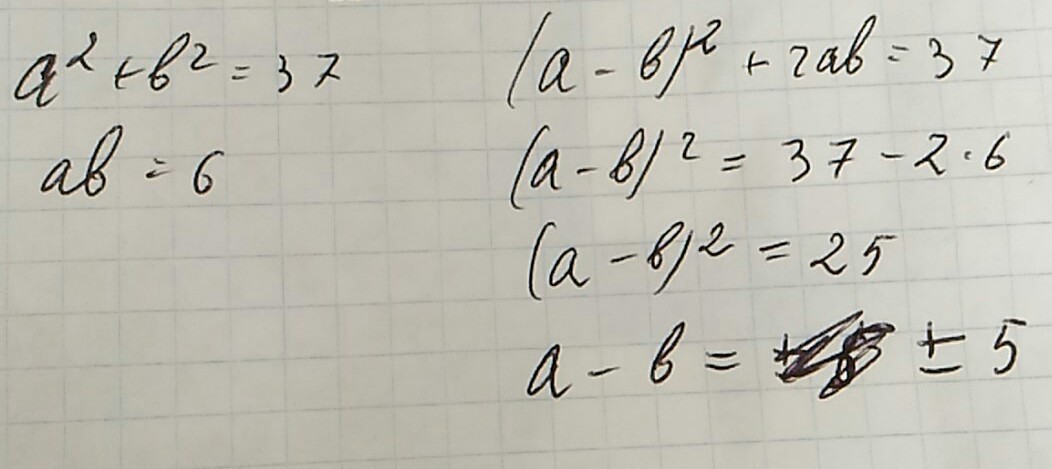 a² + b² = 37
ab = 6
(a - b)² + 2ab = 37
(a - b)² = 37 - 2·6
(a - b)² = 25
a - b = ± 5